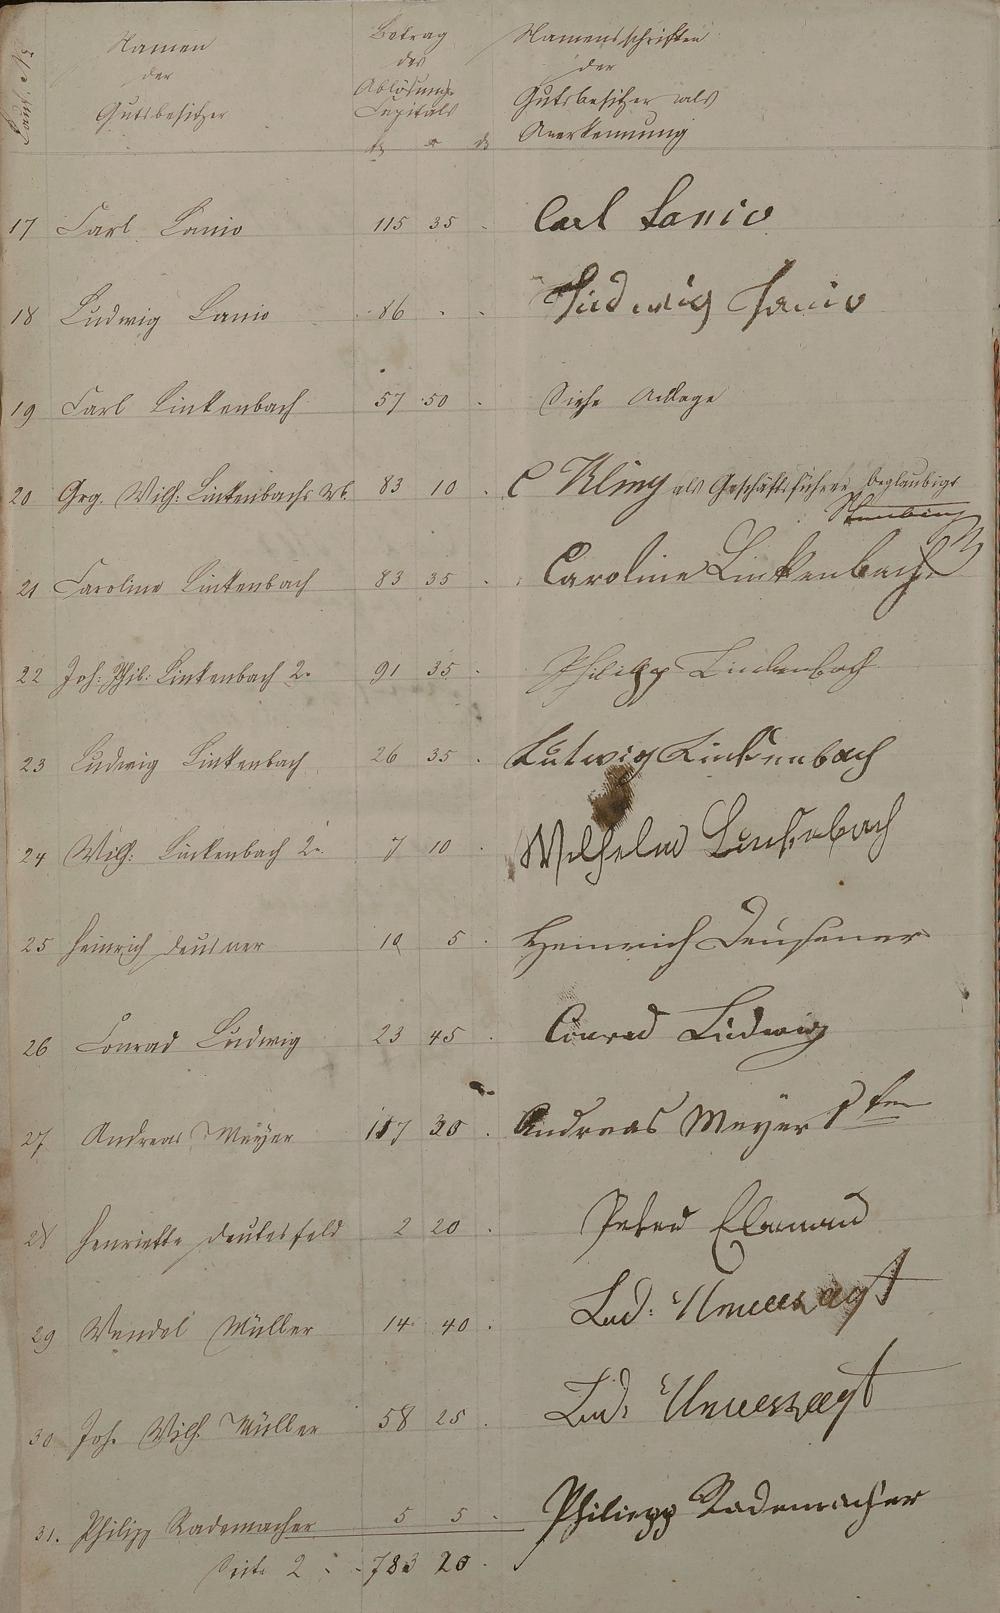 Lauf. Nr.
Namen
der
Gutsbesitzer
Betrag
des
Ablösungs
Capitals
Namensschriften
der
Gutsbesitzer als
Anerkennung
17 Carl Lanio 115 35 . Carl Lanio
18 Ludwig Lanio 86 . . Ludwig Lanio
19 Carl Linkenbach 57 50 . Siehe Anlage
20 Grg. Wilh: Linkenbachs Wb. 83 10 . C Kling als Geschäftsführer beglaubigt
21 Caroline Linkenbach 83 35 . Caroline Linkenbach
22 Joh: Phil: Linkenbach 2r 91 35 . Philipp Linkenbach
23 Ludwig Linkenbach 26 35 . Lutwig Linkenbach
24 Wilh: Linkenbach 2r 7 10 . Wilhelm Linkenbach
25 Heinrich Deusner 10 5 . Heinrich Deusener
26 Conrad Ludwig 23 45 . Conrad Ludwig
27 Andreas Meÿer 117 30 . Andreas Meyer
28 Henriette Deutesfeld 2 20 . Peter
29 Wendel Müller 14 40 . Lud: Unverzagt
30 Joh. Wilh. Müller 58 25 . Lud: Unverzagt
31. Philipp Rademacher 5 5 . Philiepp Rademacher
Seite 2 . . 783 20 .